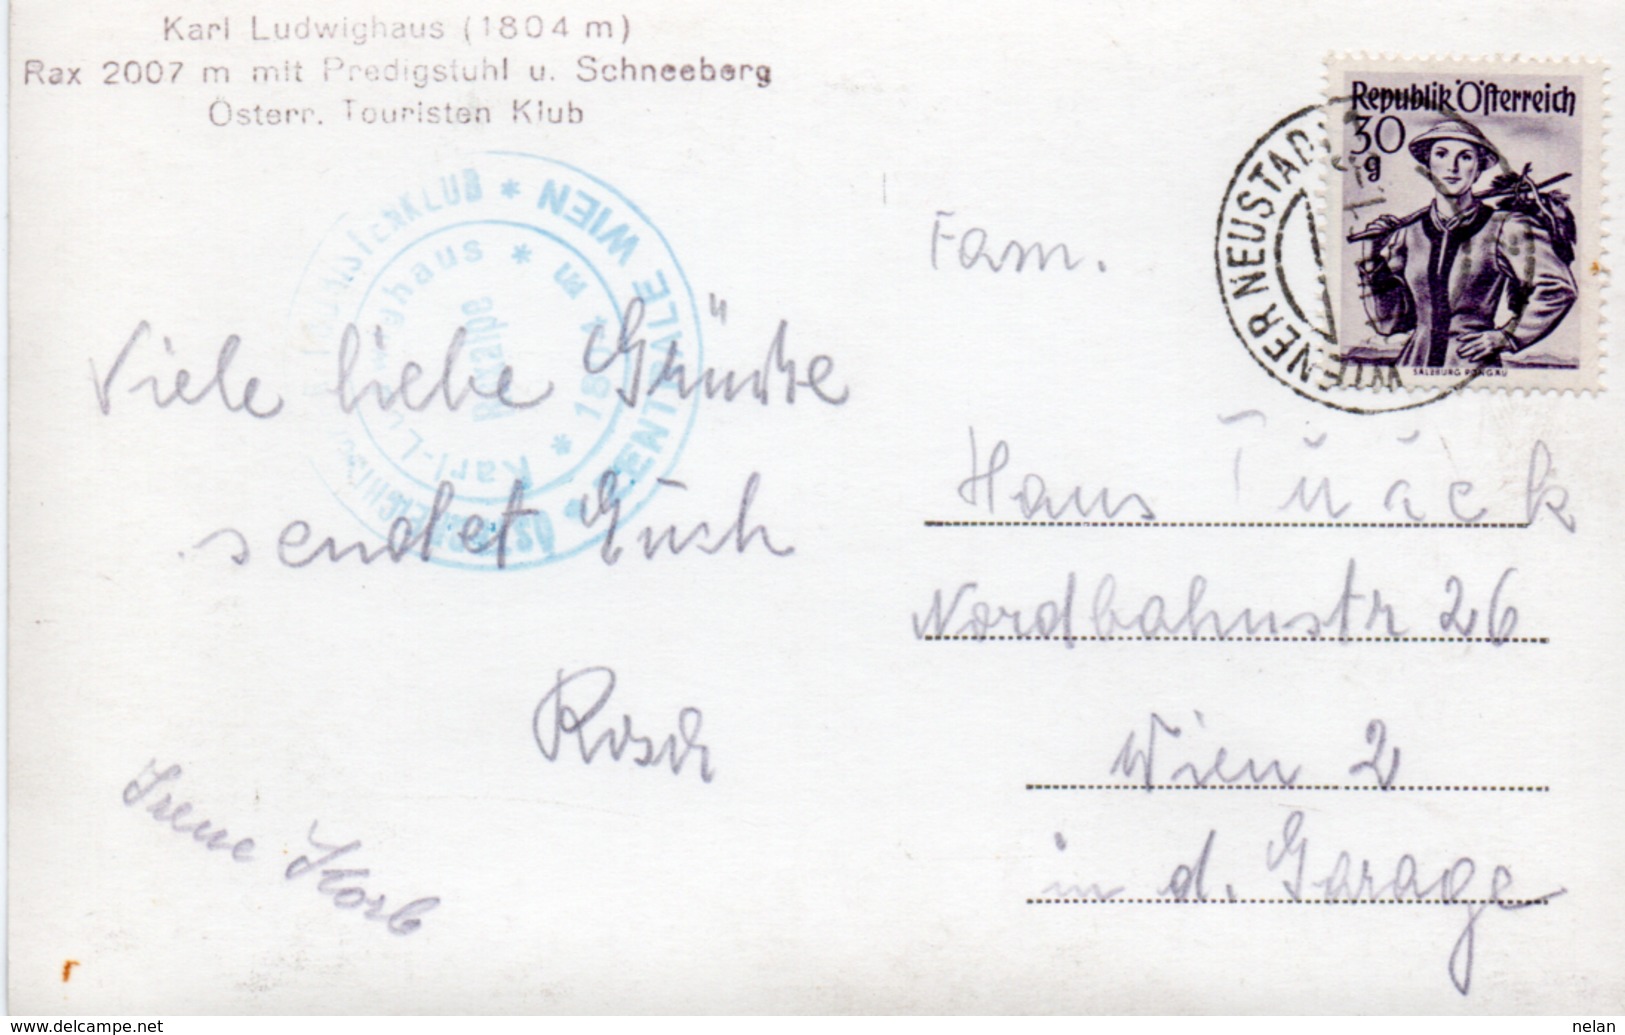 Karl Ludwighaus (1804 m)
Rax 2007 m mit Predigstuhl u. Schneeberg
Österr. Touristen Klub
ZENTRALE WIEN
Karl-Ludwighaus * 1804 m *
Raxalpe
Republik Österreich
30
g
SALZBURG PONGAU
WIENER NEUSTADT
Viele liebe Grüße
sendet Euch
Rosa
Irene Korb
Fam.
Hans
Nordbahnstr 26
Wien 2
in d. Garage
www.delcampe.net
nelan